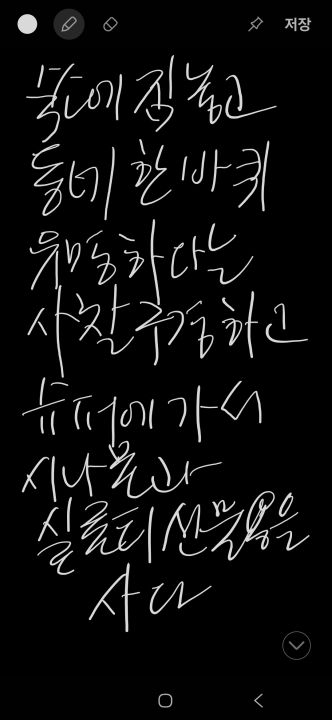 저장
숙소에 짐 놓고
동네 한 바퀴
유명하다는
사찰 구경하고
슈퍼에 가서
시나몬과
실론티 선물용을
사다